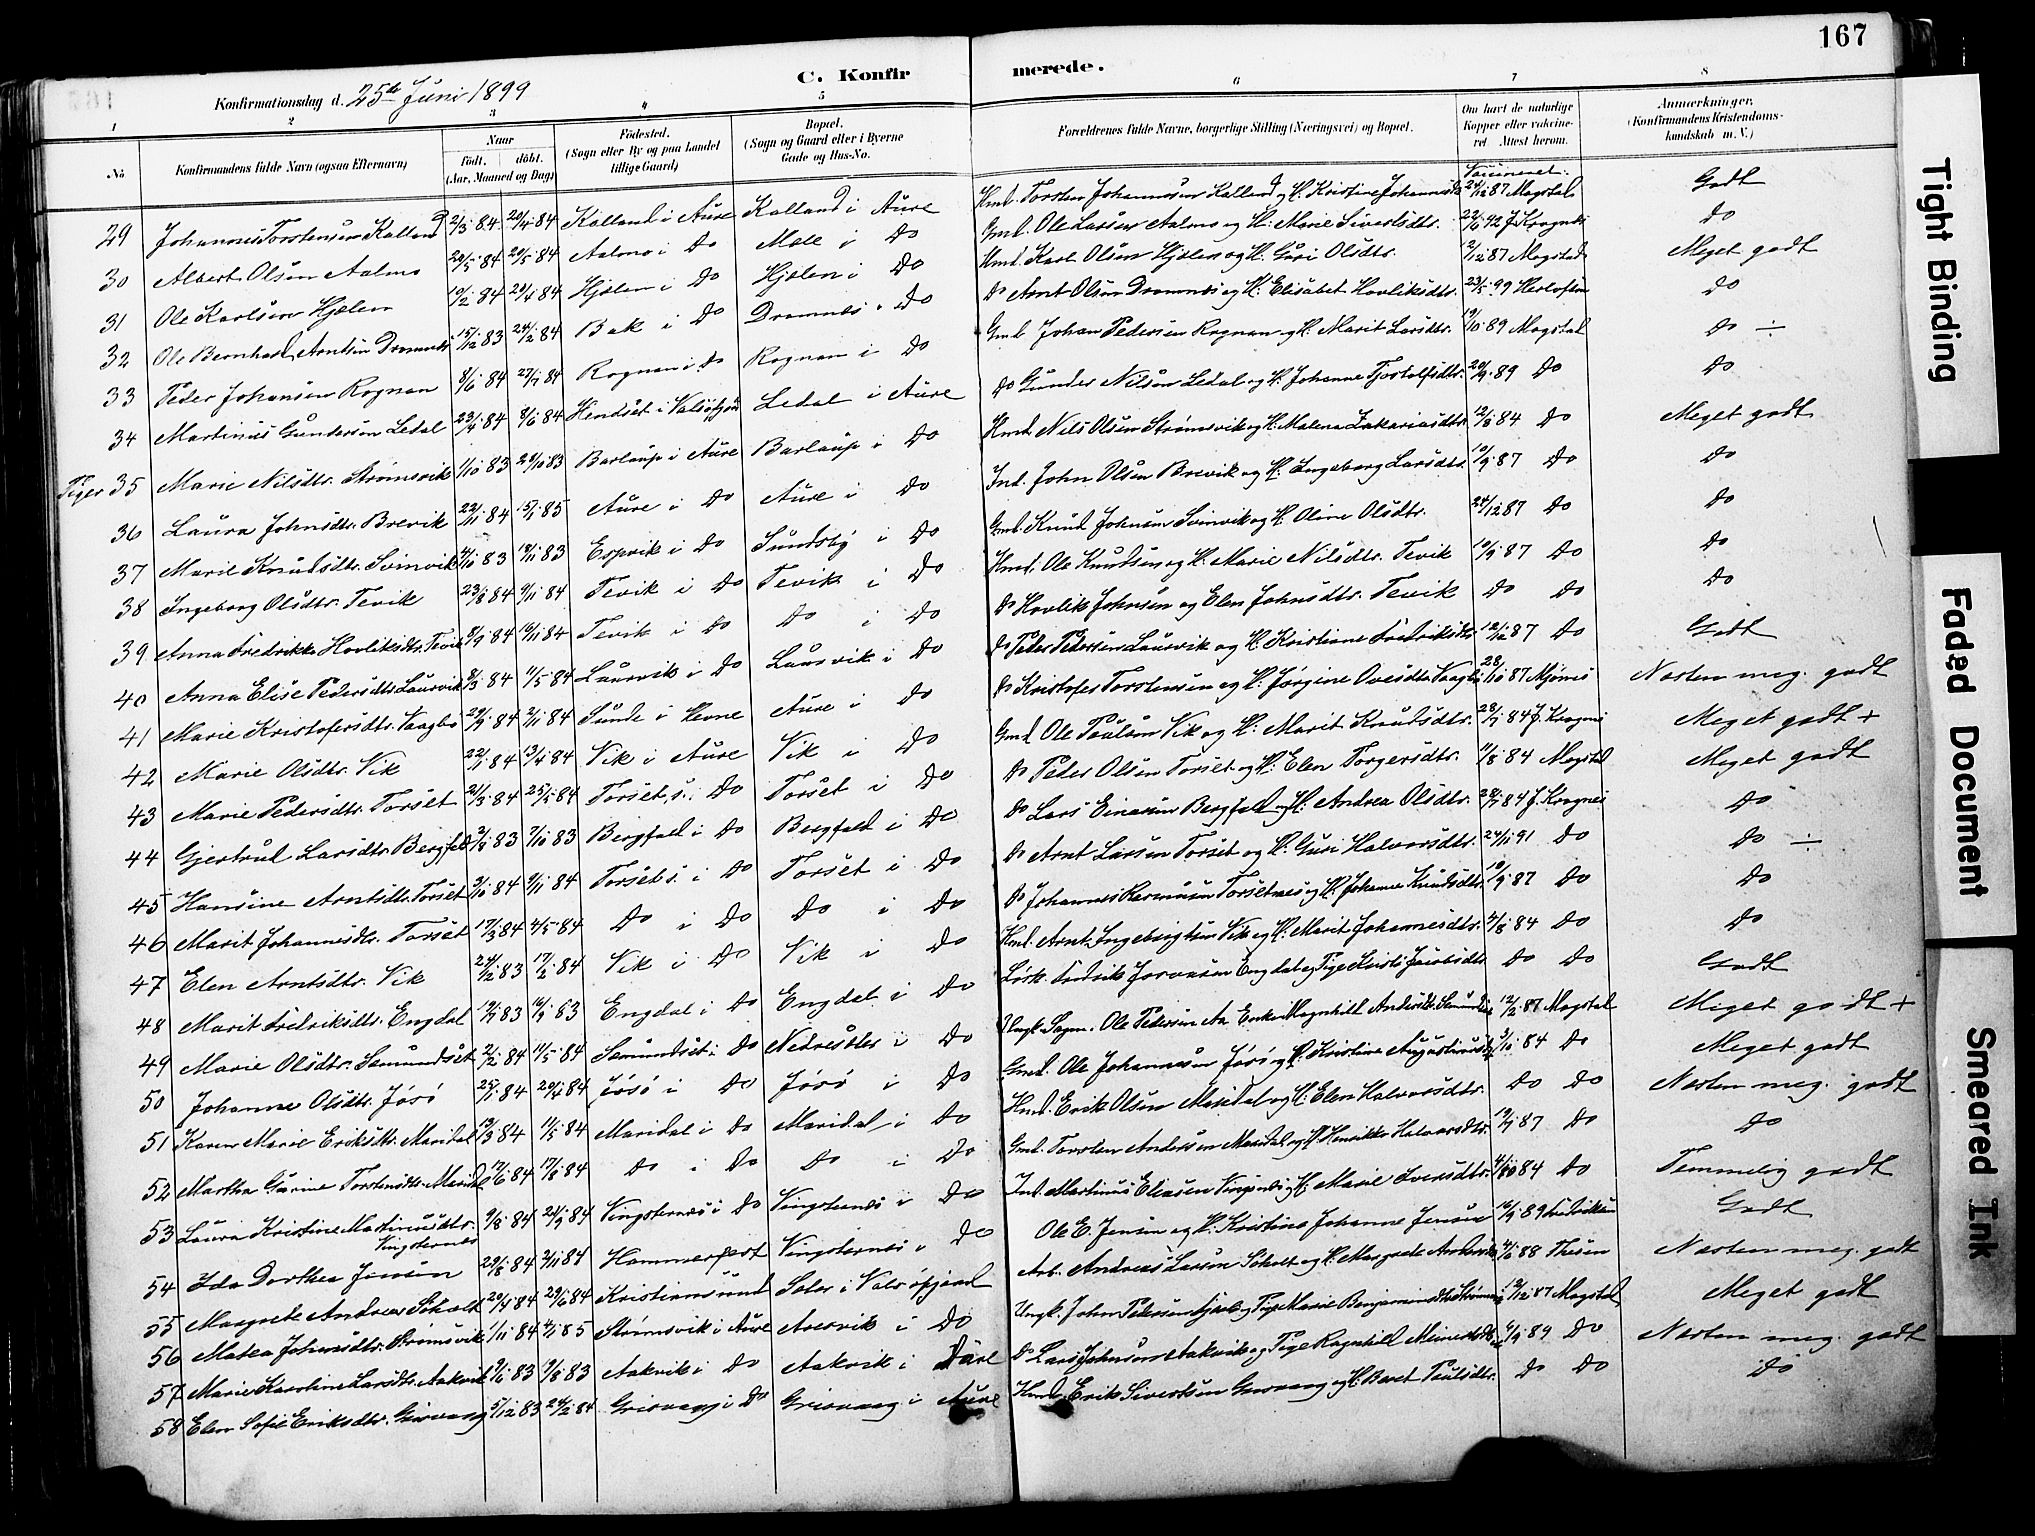 167
C. Konfirmerede.
Konfirmationsdag d. 25de Juni 1899
1 2 3 4 5 6 7 8
No
Konfirmandens fulde Navn (ogsaa Efternavn)
Naar født. døbt. (Aar, Maaned og Dag)
Fødested. (Sogn eller By og paa Landet tillige Gaard)
Bopæl. (Sogn og Gaard eller i Byerne Gade og Hus-No.
Forældrenes fulde Navne, borgerlige Stilling (Næringsvei) og Bopæl.
Om havt de naturlige Kopper eller vakcineret Attest herom.
Anmærkninger. (Konfirmandens Kristendomskundskab m. V.)
Vaccineret.
29 Johannes Torstensen Kalland 2/3 84 20/4 84 Kalland i Aure Kalland i Aure Gmd. Torsten Johannesen Kalland og H. Kristine Johannesdtr. 24/12 87 Magstad Godt
30 Albert Olsen Aalmo 84 20/5 84 Aalmo i Do Mæle i Do Gmd. Ole Larsen Aalmo og H. Marie Sivertsdtr. J. Krognes Do
31 Ole Karlsen Hjælen 10/2 84 20/4 84 Hjælen i Do Hjælen i Do Hmd. Karl Olsen Hjælen og H. Guri Olsdtr. 2/12 87 Magstad Meget godt
32 Ole Bernhard Arntsen Dromnes 15/12 83 24/2 84 Bak i Do Dromnes i Do Do Arnt Olsen Dromnes og H. Elisabet Hovliksdtr. 23/5 99 Herlofsen Do
33 Peder Johansen Rognan 8/6 84 27/7 84 Rognan i Do Rognan i Do Gmd. Johan Pedersen Rognan og H. Marit Larsdtr. 19/10 89 Magstad Do ÷
34 Martinus Gundersen Ledal 23/4 84 8/6 84 Hendset i Valsøfjord Ledal i Aure Do Gunder Nilsen Ledal og H. Johanne Tjostolfsdtr. 20/9 89 Do Do
Piger 35 Marie Nilsdtr. Strømsvik 1/10 83 83 Barlaup i Aure Barlaup i Do Hmd. Nils Olsen Strømsvik og H. Malena Zakariasdtr. 12/8 84 Do Meget godt
36 Laura Johnsdtr. Brevik 22/11 84 15/1 85 Aure i Do Aure i Do Ind. John Olsen Brevik og H. Ingeborg Larsdtr. 10/9 87 Do Do
37 Marie Knudsdtr. Svinvik 4/10 83 18/11 83 Espvik i Do Sundsby i Do Gmd. Knud Johnsen Svinvik og H. Oline Olsdtr. 24/12 87 Do Do
38 Ingeborg Olsdtr. Tevik 23/8 84 9/11 84 Tevik i Do Tevik i Do Hmd. Ole Knudsen og H. Marie Nilsdtr. Tevik 10/9 87 Do Do
39 Anna Fredrikke Hovliksdtr. Tevik 9/9 84 16/11 84 Tevik i Do Do i Do Do Hovlik Johnsen og Elen Johnsdtr. Tevik Do Do Do
40 Anna Elise Pedersdtr. Laurvik 8/3 84 11/5 84 Laurvik i Do Laurvik i Do Do Peder Pedersen Laurvik og H. Kristiane Fredriksdtr. 12/12 87 Do Godt
41 Marie Kristofersdtr. Vaagbø 29/9 84 2/11 84 Sunde i Hevne Aure i Do Do Kristofer Torstensen og H. Jørgine Ovesdtr. Vaagbø 28/10 87 Mjønes Næsten meg. godt
42 Marie Olsdtr. Vik 22/1 84 13/4 84 Vik i Aure Vik i Do Gmd. Ole Paulsen Vik og H. Marit Knudsdtr. 28/7 84 J. Krognes Meget godt +
43 Marie Pedersdtr. Torset 21/3 84 25/5 84 Torset, s. i Do Torset i Do Do Peder Olsen Torset og H. Elen Torgersdtr. 11/8 84 Magstad Meget godt
44 Gjertrud Larsdtr. Bergfald 83 7/10 83 Bergfald i Do Bergfald i Do Do Lars Einarsen Bergfald og H. Andrea Olsdtr. 28/7 84 J. Krognes Do
45 Hansine Arntsdtr. Torset 3/10 84 9/11 84 Torset s. i Do Torset i Do Do Arnt Larsen Torset og H. Guri Halvorsdtr. 24/11 91 Do Do ÷
46 Marit Johannesdtr. Torset 17/3 84 4/5 84 Do i Do Do i Do Do Johannes Rasmusen Torsetnes og H. Johanne Knudsdtr. 10/9 87 Do Do
47 Elen Arntsdtr. Vik 24/12 83 17/2 84 Vik i Do Vik i Do Hmd. Arnt Ingebrigtsen Vik og H. Marit Johannesdtr. 4/8 84 Do Do
48 Marit Fredriksdtr. Engdal 19/7 83 16/9 83 Engdal i Do Engdal i Do Løsk. Fredrik Engdal og Pige Jacobsdtr. Do Do Godt
49 Marie Olsdtr. Semundset 2/2 84 11/5 84 Semundset i Do Nedresæter i Do Ungk. Sagm. Ole Pedersen Aa Enke Magnhild Andersdtr. Semundset 12/2 87 Magstad Meget godt +
50 Johanne Olsdtr. Jøsø 25/1 84 20/4 84 Jøsø i Do Jøsø i Do Gmd. Ole Johannesen Jøsø og H. Kristine Augustinusdtr. 3/10 84 Do Meget godt
51 Karen Marie Eriksdtr. Maridal 13/3 84 11/5 84 Maridal i Do Maridal i Do Hmd. Erik Olsen Maridal og H. Elen Halvorsdtr. Do Do Næsten meg. godt
52 Martha Gurine Torstensdtr. Maridal 84 17/8 84 Do i Do Do i Do Gmd. Torsten Andersen Maridal og H. Henrikke Halvorsdtr. 19/9 87 Do Do
53 Laura Kristine Martinusdtr. Vingsternes 9/8 84 21/9 84 Vingsternes i Do Vingsternes i Do Ind. Martinus Eliasen Vingsnes og H. Marie Iversdtr. 84 Do Temmelig godt
54 Ida Dorthea Jensen 29/8 84 2/11 84 Hammerfest Vingsternes i Do Ole E. Jensen og H. Kristina Johanne Jensen 16/9 89 Fredriksen Godt
55 Margrete Andrea Sekolt 20/4 84 29/6 84 Kristiansund Sæter i Valsøfjord Arb. Andreas Larsen Sekolt og H. Margrete 4/6 88 Thesen Næsten meg. godt
56 Matea Johnsdtr. Strømsvik 1/11 84 4/1 85 Strømsvik i Aure Aresvik i Do Ungk. John Petersen og Pige Marie Benjaminsdtr. 13/12 87 Magstad Meget godt
57 Marie Karoline Larsdtr. Aakvik 9/6 83 9/8 83 Aakvik i Do Aakvik i Aure Do Lars Johnsen Aakvik og Pige Ragnhild 4/9 89 Do Næsten meg. godt
58 Elen Sofie Eriksdtr. Grisvaag 5/12 83 24/2 84 Grisvaag i Do Grisvaag i Aure Hmd. Erik Sivertsen Grisvaag og H. Beret Paulsdtr. Do Do Do
Tight Binding
Faded Document
Smeared Ink